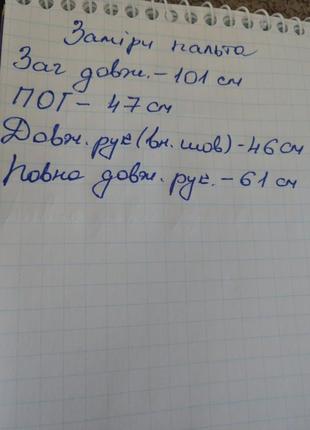 Заміри пальта
Заг довж. - 101 см
ПОГ - 47 см
Довж. рук (вн. шов) - 46 см
Повна довж. рук. - 61 см